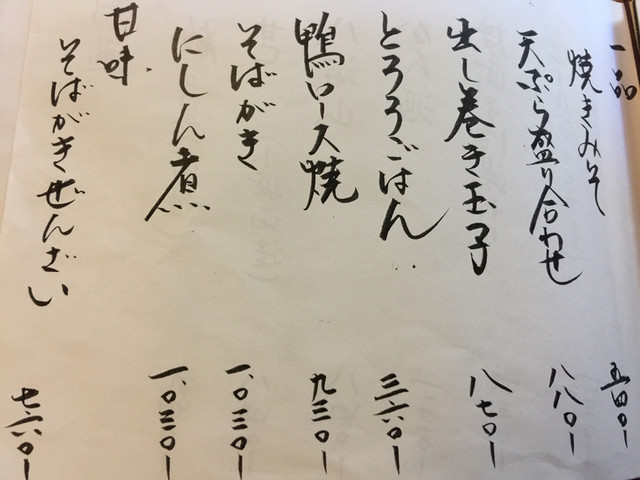 一品
焼きみそ 五四〇ー
天ぷら盛り合わせ 八八〇ー
出し巻き玉子 八七〇ー
とろろごはん 三六〇ー
鴨ロース焼 九三〇ー
そばがき 一、〇三〇ー
にしん煮 一、〇三〇ー
甘味
そばがきぜんざい 七六〇ー